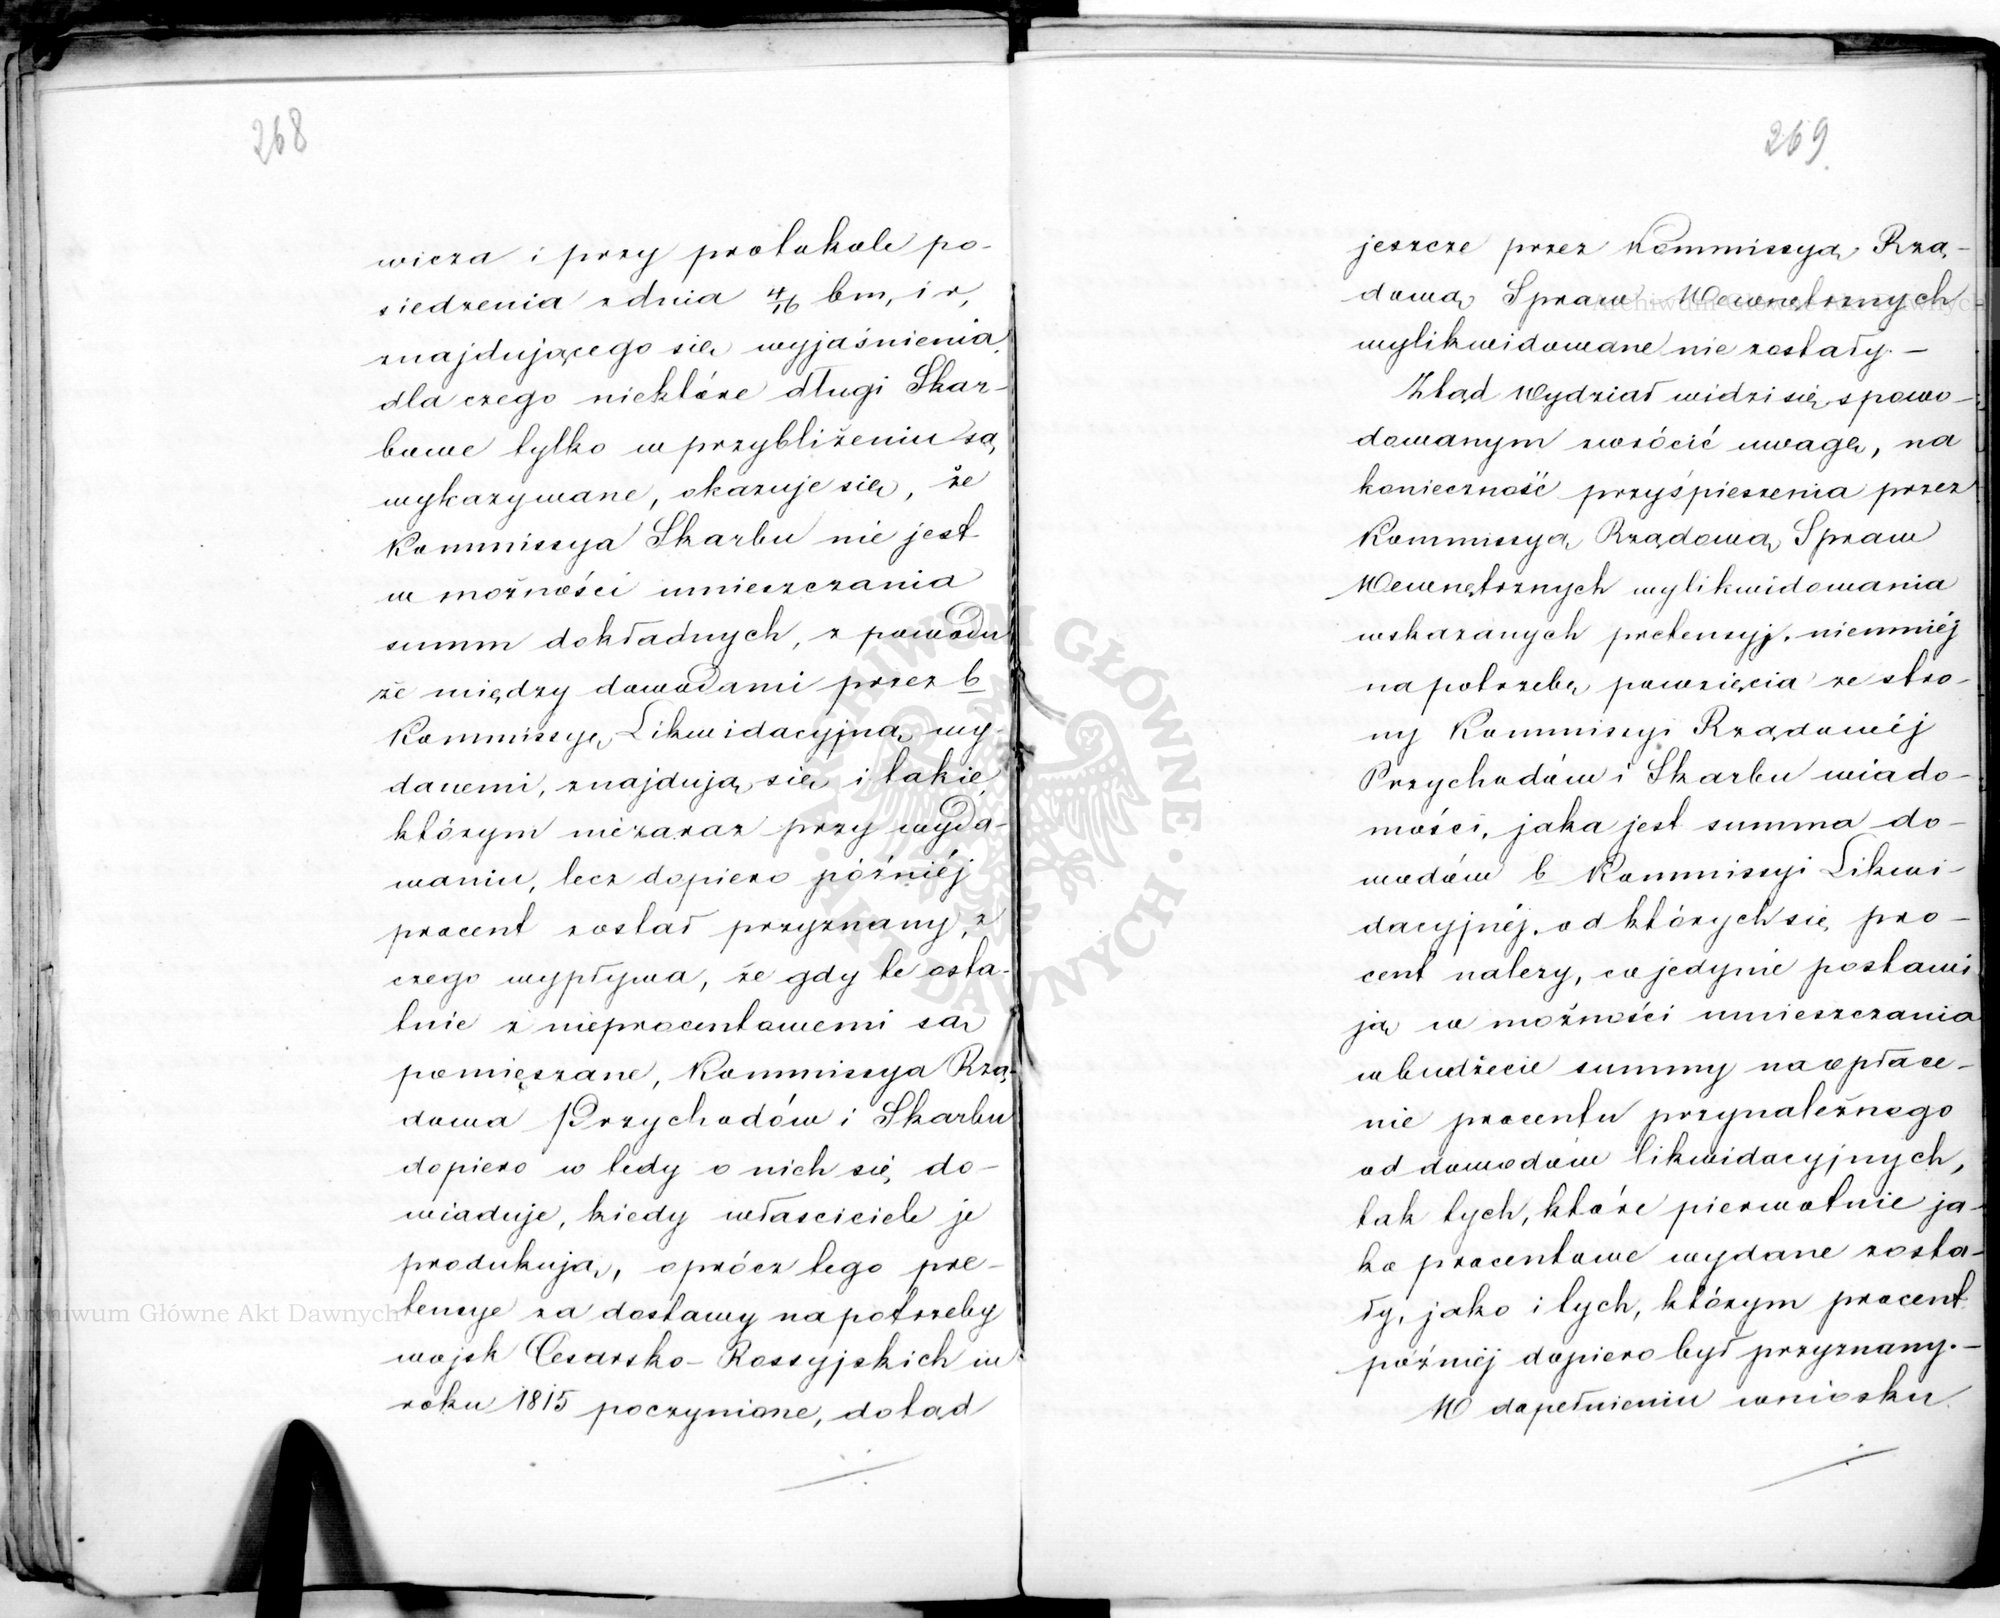 268
wicza i przy protokole po-
siedzenia z dnia 4/16 bm, i r,
znajdującego się wyjaśnienia,
dla czego niektóre długi Skar-
bowe tylko w przybliżeniu są,
wykazywane, okazuje się, że
Kommissya Skarbu nie jest
w możności umieszczania
summ dokładnych, z powodu
że między dowodami przez b
Kommissyę Likwidacyjną wy-
danemi, znajdują się i takie,
którym niezaraz przy wyda-
waniu, lecz dopiero późniéj
procent został przyznany, z
czego wypływa, że gdy te osta-
tnie z nieprocentowemi są
pomięszane, Kommissya Rzą-
dowa Przychodów i Skarbu
dopiero w tedy o nich się do-
wiaduje, kiedy właściciele je
produkują, oprócz tego pre-
tensye za dostawy na potrzeby
wojsk Cesarsko-Rossyjskich w
roku 1815 poczynione, dotąd
269
jeszcze przez Kommissyą Rzą-
dową Spraw Wewnętrznych
wylikwidowane nie zostały.—
Ztąd Wydział widzi się spowo-
dowanym zwrócić uwagę, na
konieczność przyśpieszenia przez
Kommissyą Rządową Spraw
Wewnętrznych wylikwidowania
wskazanych pretensyj, niemniéj
na potrzebę powzięcia ze stro-
ny Kommissyi Rządowéj
Przychodów i Skarbu wiado-
mości, jaka jest summa do-
wodów b Kommissyi Likwi-
dacyjnéj, od których się pro-
cent należy, co jedynie postawi
ją w możności umieszczania
w budżecie summy na opłace-
nie procentu przynależnego
od dowodów likwidacyjnych,
tak tych, które pierwotnie ja-
ko procentowe wydane zosta-
ły, jako i tych, którym procent
późniéj dopiero był przyznany.—
W dopełnieniu wniosku
Archiwum Główne Akt Dawnych
Archiwum Główne Akt Dawnych
ARCHIWUM GŁÓWNE AKT DAWNYCH